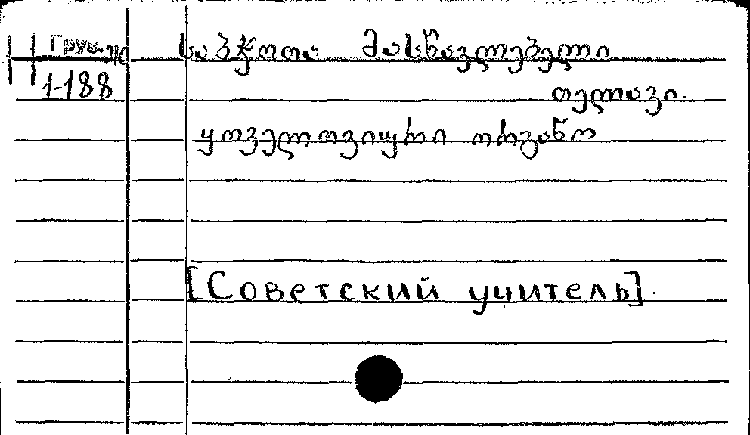 Груз.ж
1-188
საბჭოთა მასწავლებელი
თელავი.
ყოველთვიური ორგანო
[Советский учитель].